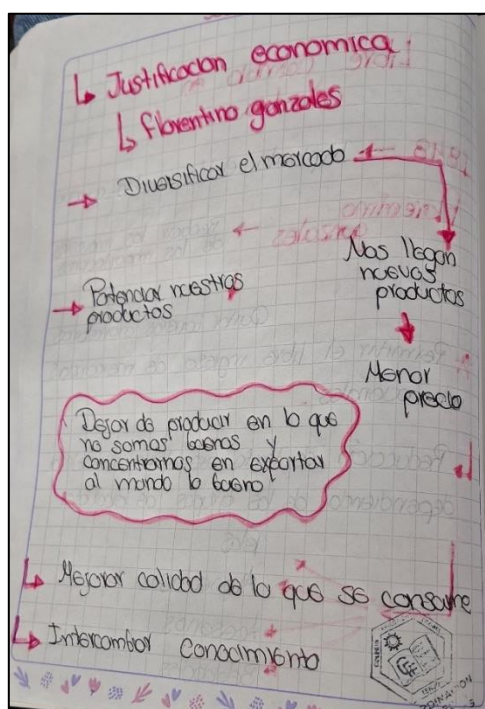 ↳ Justificacion economica
↳ Florentino gonzales
→ Diversificar el mercado
Nos llegan
nuevos
productos
→ Potenciar nuestros
productos
Menor
precio
Dejar de producir en lo que
no somos buenos y
concentrarnos en exportar
al mundo lo bueno
↳ Mejorar calidad de lo que se consume
↳ Intercambiar conocimiento